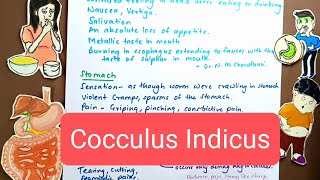 feeling in head after eating or drinking
Nausea, Vertigo.
Salivation
An absolute loss of appetite.
Metallic taste in mouth
Burning in esophagus extending to fauces with the
taste of sulphur in mouth.
- Dr. N. M. Choudhuri.
Stomach
Sensation - as though worm were crawling in stomach
Violent Cramps, spasms of the stomach.
Pain - Griping, pinching, constrictive pain.
Cocculus Indicus
Tearing, cutting,
spasmodic pain.
occurs only during